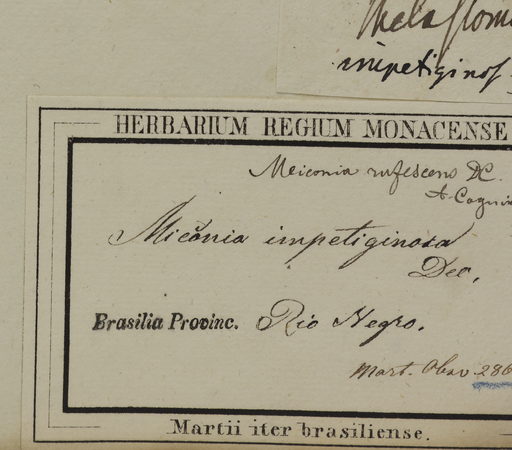 impetiginos
HERBARIUM REGIUM MONACENSE
Meiconia rufescens DC.
A. Cogni
Miconia impetiginosa
Dec.
Brasilia Provinc. Rio Negro.
Mart. Obsv. 286
Martii iter brasiliense.